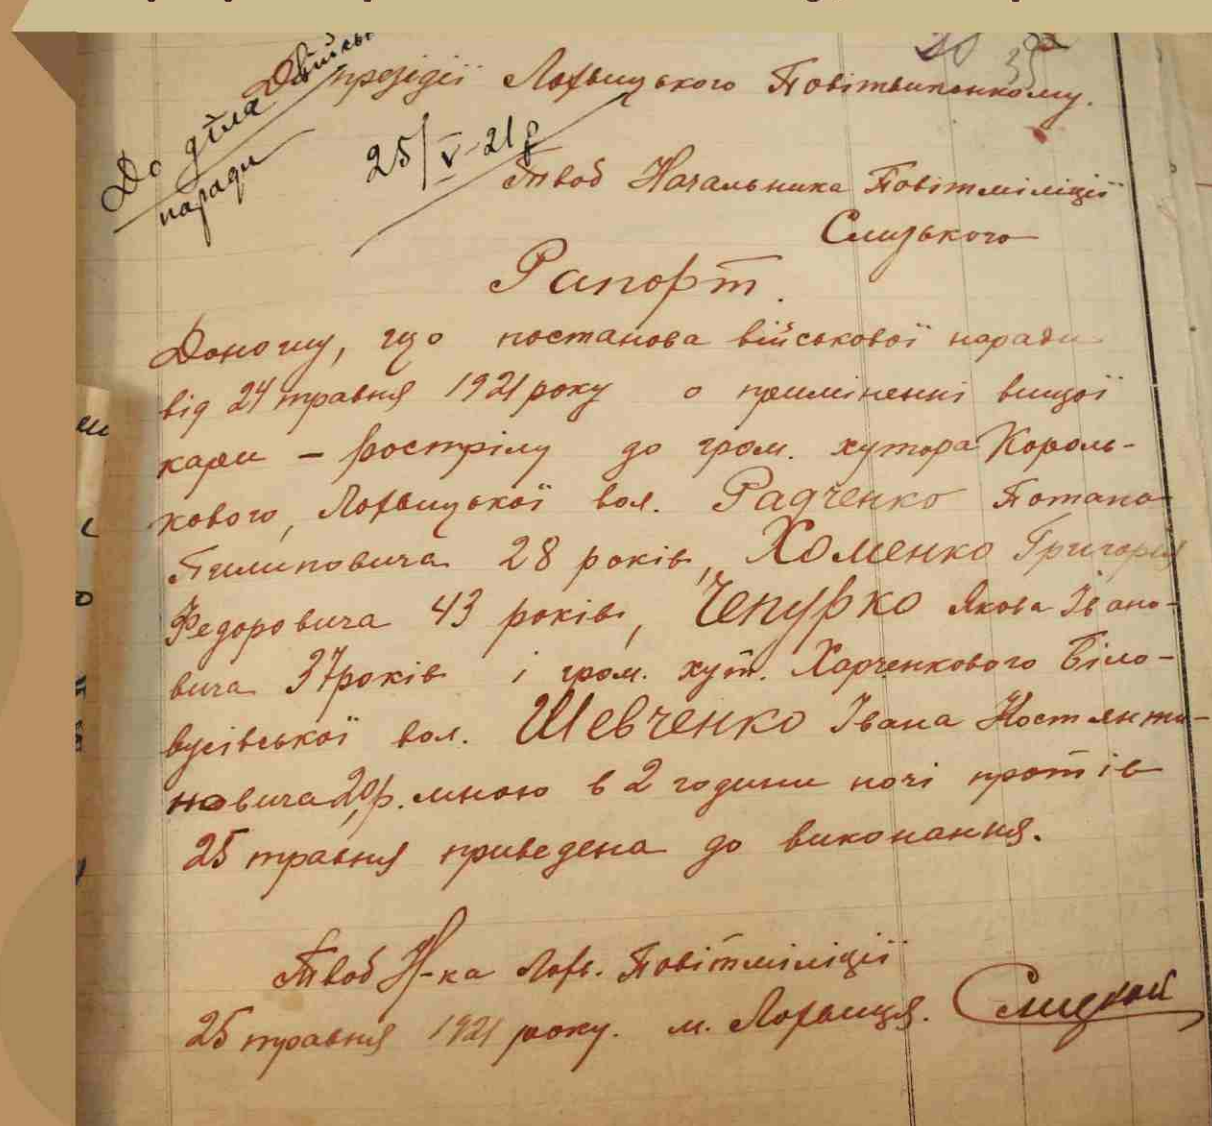 До діла військ
наради
25/V-21р
До президії Лохвицького Повітвиконкому.
Твоб Начальника Повітміліції
Слизького
Рапорт.
Доношу, що постанова військової наради
від 24 травня 1921 року о приміненні вищої
кари - розстрілу до гром. хутора Король-
кового, Лохвицької вол. Радченко Потапа
Пилиповича 28 років, Хоменко Григорія
Федоровича 43 років, Чепурко Якова Івано-
вича 37 років і гром. хут. Харченкового Біло-
вусівської вол. Шевченко Івана Костянти-
новича 20 р. мною в 2 години ночі протів
25 травня приведена до виконання.
Твоб Н-ка Лохв. Повітміліції
25 травня 1921 року. м. Лохвиця.